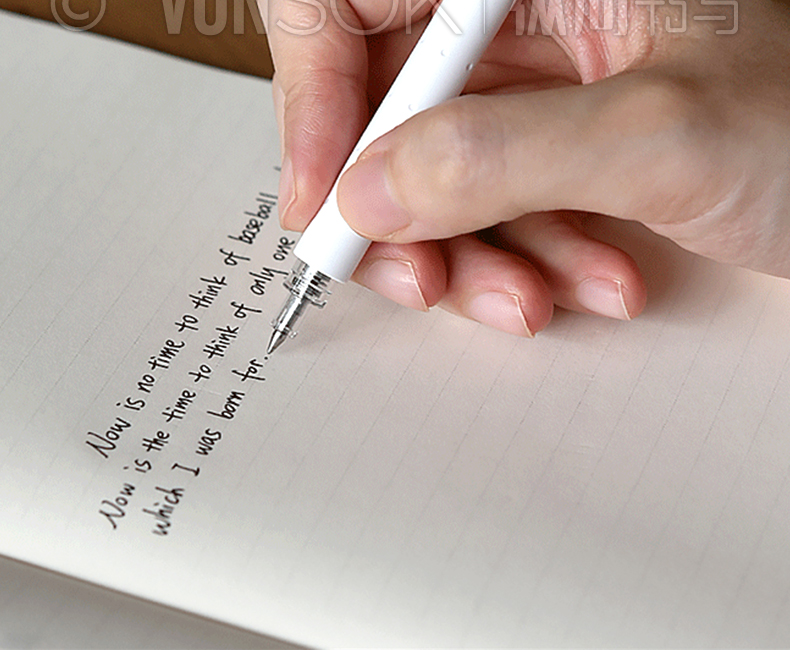 Now is no time to think of baseball
Now is the time to think of only one
which I was born for.